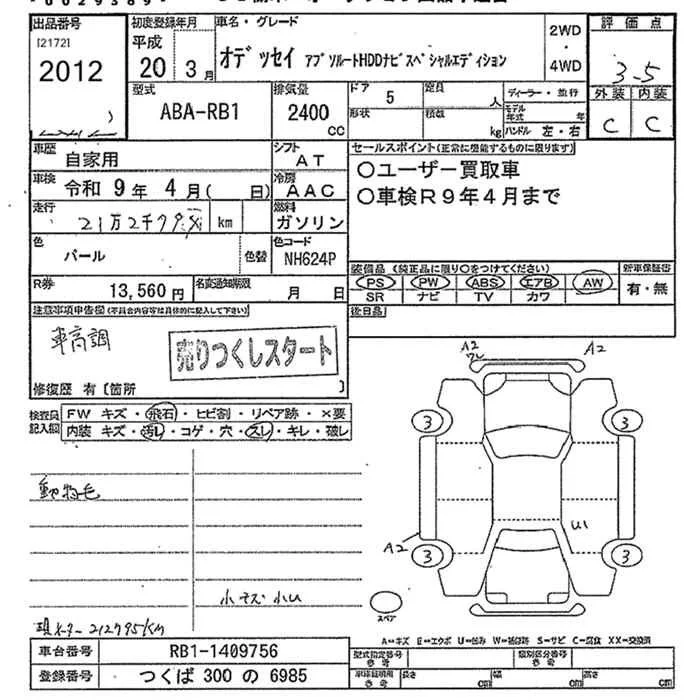 出品番号
[2172]
2012
初度登録年月
平成
20 3月
車名・グレード
オデッセイ アブソルートHDDナビスペシャルエディション
2WD
・
4WD
評価点
3.5
外装 内装
C C
型式
ABA-RB1
排気量
2400
CC
ドア 5
定員 人
形状
積載 kg
ディーラー・並行
モデル年式 年
ハンドル 左・右
車歴 自家用
シフト AT
車検 令和 9年 4月( 日)
冷房 AAC
走行
km
燃料 ガソリン
色 パール
色替
色コード NH624P
R券 13,560円
名変通知期限 月 日
セールスポイント(正常に機能するものに限ります)
○ユーザー買取車
○車検R9年4月まで
装備品 (純正品に限り○をつけてください)
PS PW ABS エアB AW
SR ナビ TV カワ
新車保証書
有・無
後日品
注意事項申告欄(不具合内容等は具体的に記入して下さい)
車高調
売りつくしスタート
修復歴 有〔箇所 〕
検査員記入欄
FW キズ・飛石・ヒビ割・リペア跡・×要
内装 キズ・汚レ・コゲ・穴・スレ・キレ・破レ
動物毛
小キズ小U
現メーター212795KM
A2
A2
3
3
U1
A2
3
3
スペア
A=キズ E=エクボ U=凹み W=補修跡 S=サビ C=腐食 XX=交換済
車台番号 RB1-1409756
登録番号 つくば 300 の 6985
型式指定番号 参考
類別区分番号 参考
車庫証明用 参考
長さ cm
幅 cm
高さ cm